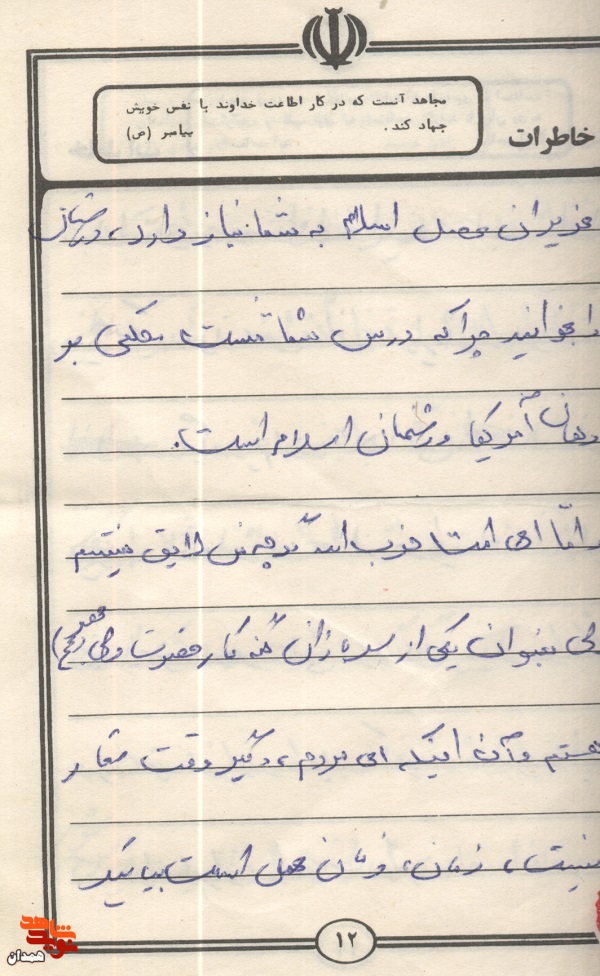 مجاهد آنست که در کار اطاعت خداوند با نفس خویش
جهاد کند. پیامبر (ص)
خاطرات
عزیزان محصل اسلام به شما نیاز دارد، درستان
را بخوانید چرا که درس شما مشت محکمی بر
دهان آمریکا و دشمنان اسلام است.
و امّا ای امت حزب الله گرچه من لایق نیستم
ولی بعنوان یکی از سربازان گنه کار حضرت ولی عصر (عج)
هستم و آن اینکه ای مردم، دیگر وقت شعار
نیست، زمان، زمان عمل است بیائید
۱۲
نوید شاهد
همدان